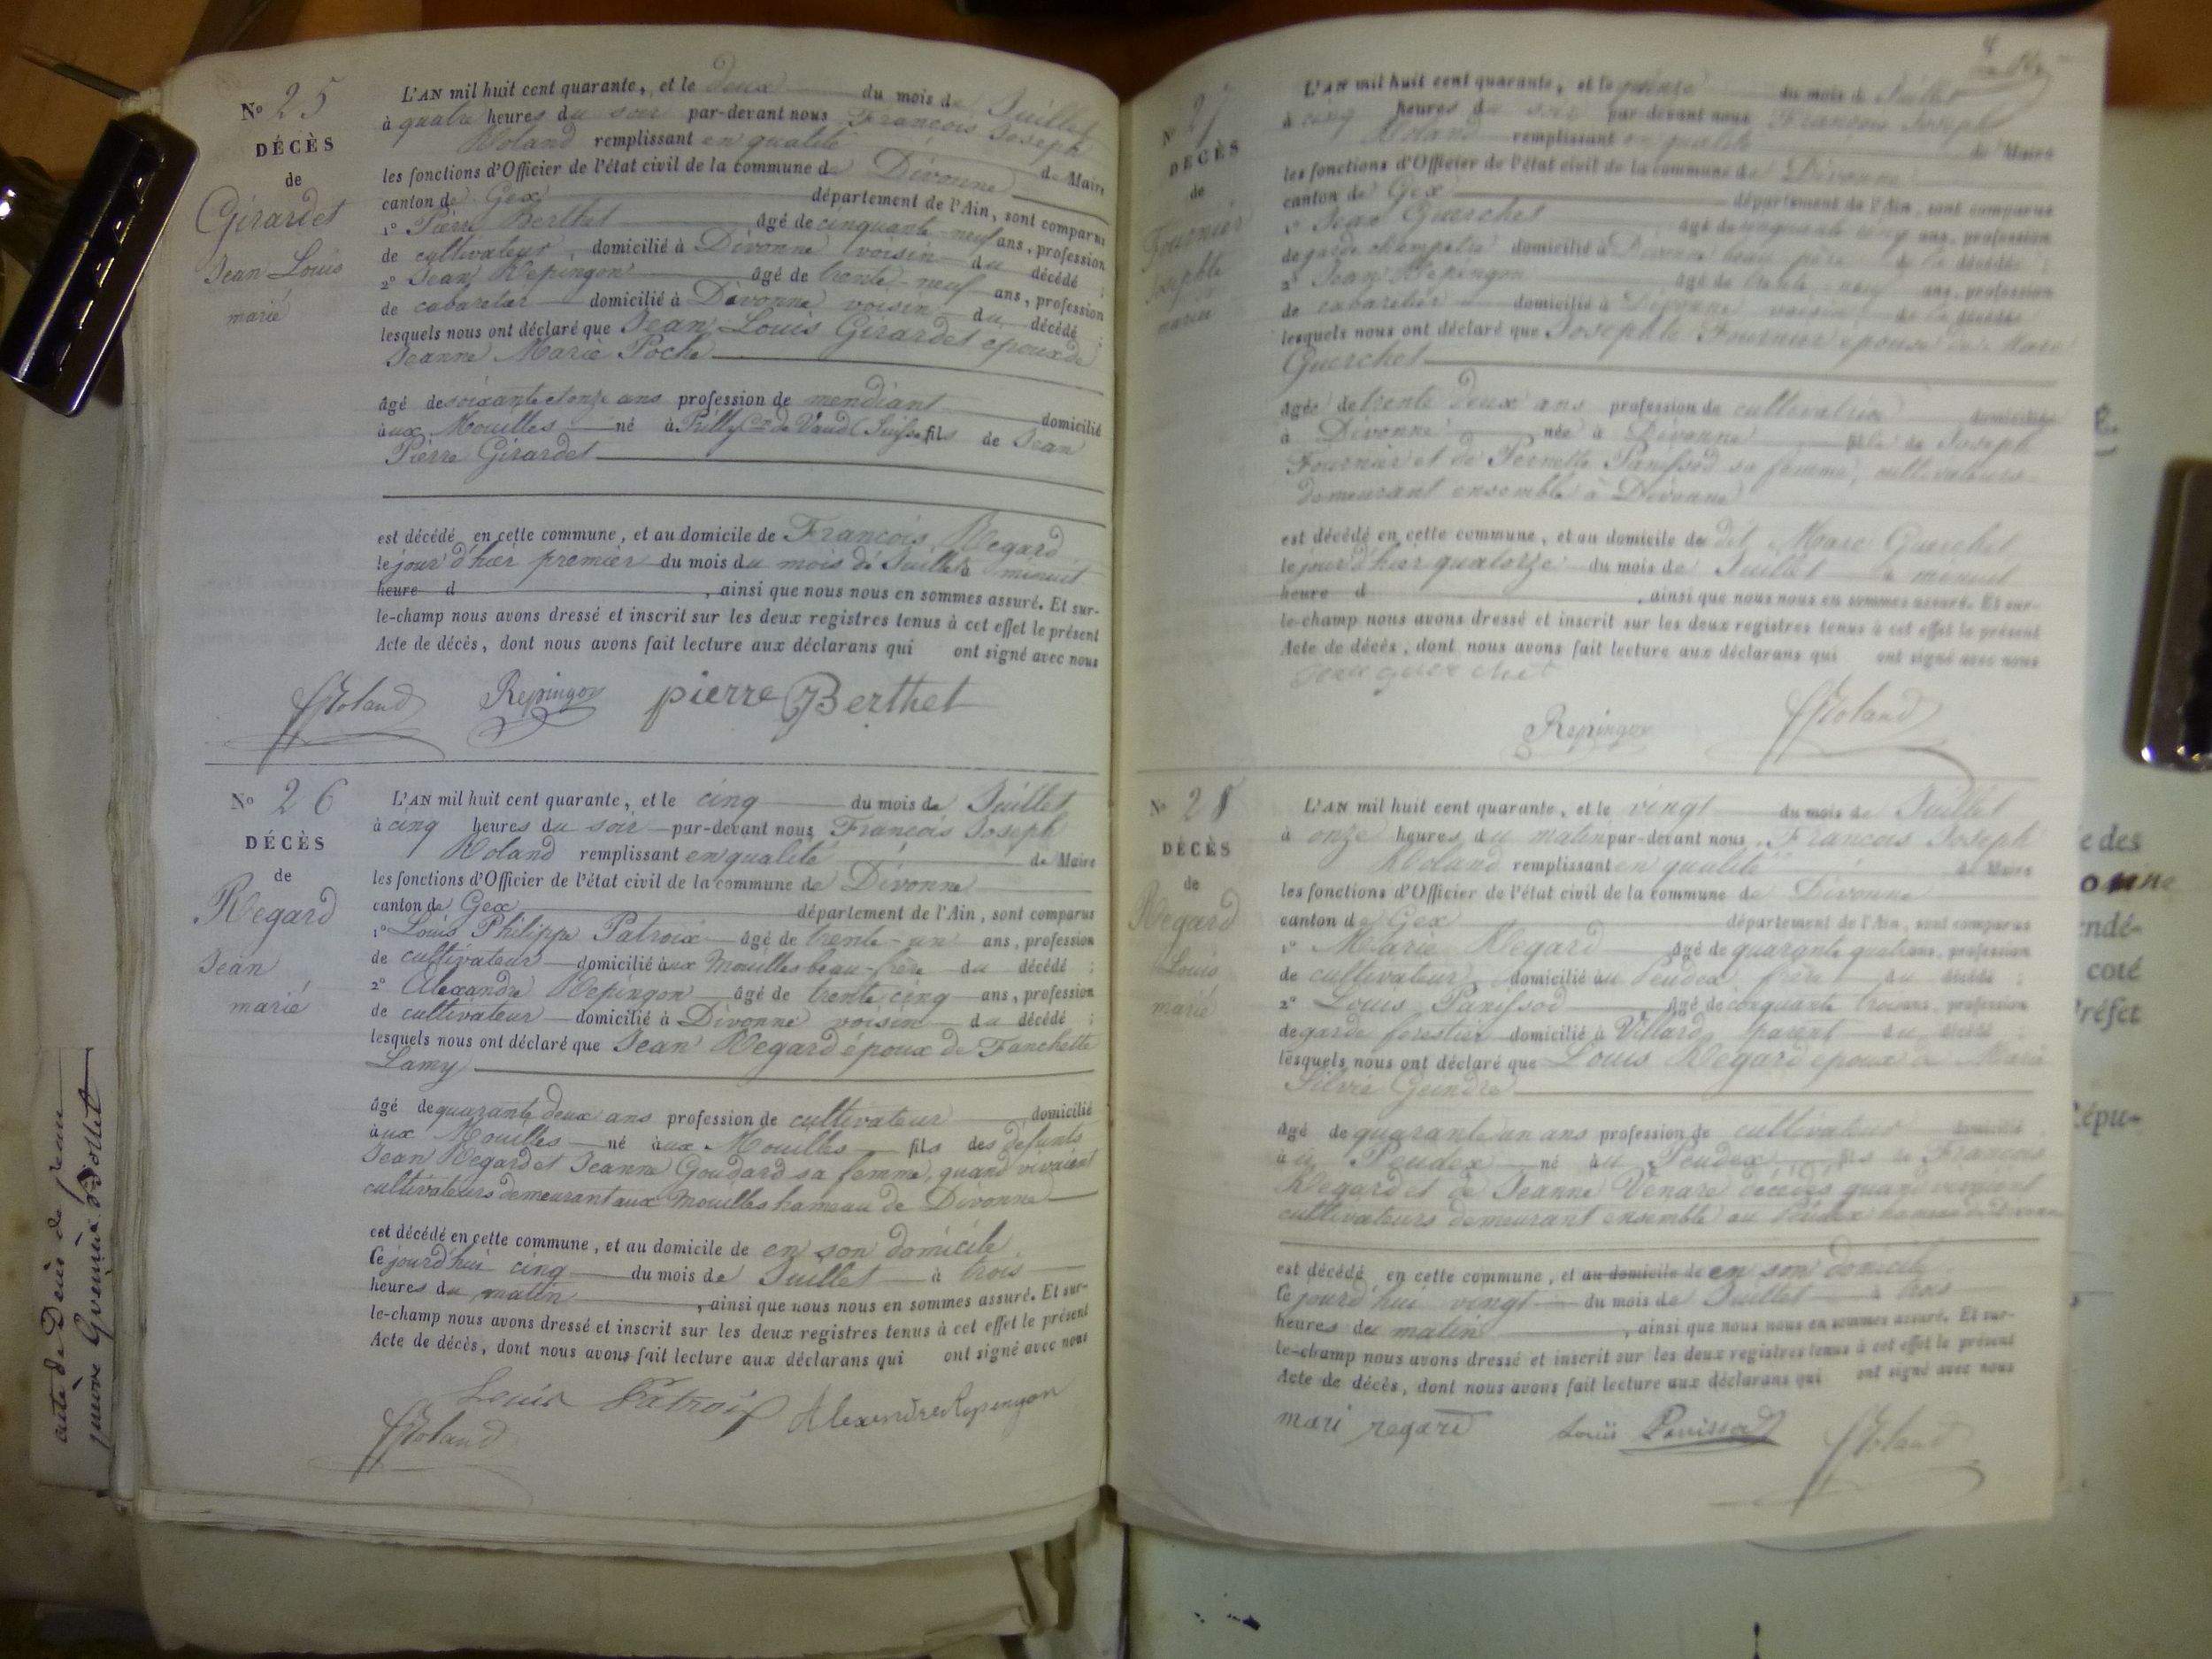 N° 25
DÉCÈS
de
Girardet
Jean Louis
marié
L'AN mil huit cent quarante, et le deux du mois de Juillet
à quatre heures du soir par-devant nous François Joseph
Roland remplissant en qualité de Maire
les fonctions d'Officier de l'état civil de la commune de Divonne
canton de Gex département de l'Ain, sont comparus
1° Pierre Berthet âgé de cinquante-neuf ans, profession
de cultivateur, domicilié à Divonne voisin du décédé ;
2° Jean Repingon âgé de trente-neuf ans, profession
de cabaretier domicilié à Divonne voisin du décédé ;
lesquels nous ont déclaré que Jean Louis Girardet époux de
Jeanne Marie Poche
âgé de soixante et onze ans profession de mendiant domicilié
aux Mouilles né à Pully Con de Vaud (Suisse fils de Jean
Pierre Girardet
est décédé en cette commune, et au domicile de François Regard
le jour d'hier premier du mois du mois de Juillet à minuit
heure d , ainsi que nous nous en sommes assuré. Et sur-
le-champ nous avons dressé et inscrit sur les deux registres tenus à cet effet le présent
Acte de décès, dont nous avons fait lecture aux déclarans qui ont signé avec nous
Roland Repingon pierre Berthet
N° 26
DÉCÈS
de
Regard
Jean
marié
L'AN mil huit cent quarante, et le cinq du mois de Juillet
à cinq heures du soir par-devant nous François Joseph
Roland remplissant en qualité de Maire
les fonctions d'Officier de l'état civil de la commune de Divonne
canton de Gex département de l'Ain, sont comparus
1° Louis Philippe Patroix âgé de trente-un ans, profession
de cultivateur domicilié aux Mouilles beau-frère du décédé ;
2° Alexandre Repingon âgé de trente cinq ans, profession
de cultivateur domicilié à Divonne voisin du décédé ;
lesquels nous ont déclaré que Jean Regard époux de Fanchette
Lamy
âgé de quarante deux ans profession de cultivateur domicilié
aux Mouilles né aux Mouilles fils des défunts
Jean Regard et Jeanne Goudard sa femme, quand vivaient
cultivateurs demeurant aux Mouilles hameau de Divonne
est décédé en cette commune, et au domicile de en son domicile
Ce jourd'hui cinq du mois de Juillet à trois
heures du matin , ainsi que nous nous en sommes assuré. Et sur-
le-champ nous avons dressé et inscrit sur les deux registres tenus à cet effet le présent
Acte de décès, dont nous avons fait lecture aux déclarans qui ont signé avec nous
Louis Patroix Alexandre Repingon
Roland
acte de Décès de jean
N° 27
DÉCÈS
de
Fournier
Josephte
mariée
L'AN mil huit cent quarante, et le quinze du mois de Juillet
à cinq heures du soir par-devant nous François Joseph
Roland remplissant en qualité de Maire
les fonctions d'Officier de l'état civil de la commune de Divonne
canton de Gex département de l'Ain, sont comparus
1° Jean Guerchet âgé de cinquante cinq ans, profession
de garde champetre domicilié à Divonne beau père de la décédée ;
2° Jean Repingon âgé de trente neuf ans, profession
de cabaretier domicilié à Divonne voisin de la décédée
lesquels nous ont déclaré que Josephte Fournier épouse de Marc
Guerchet
âgée de trente deux ans profession de cultivatrice domiciliée
à Divonne née à Divonne fille de Joseph
Fournier et de Pernette Panissod sa femme, cultivateurs
demeurant ensemble à Divonne
est décédé en cette commune, et au domicile de dit Marc Guerchet
le jour d'hier quatorze du mois de Juillet à minuit
heure d , ainsi que nous nous en sommes assuré. Et sur-
le-champ nous avons dressé et inscrit sur les deux registres tenus à cet effet le présent
Acte de décès, dont nous avons fait lecture aux déclarans qui ont signé avec nous
Jean guerchet
Repingon Roland
N° 28
DÉCÈS
de
Regard
Louis
marié
L'AN mil huit cent quarante, et le vingt du mois de Juillet
à onze heures du matin par-devant nous François Joseph
Roland remplissant en qualité de Maire
les fonctions d'Officier de l'état civil de la commune de Divonne
canton de Gex département de l'Ain, sont comparus
1° Marie Regard âgé de quarante quatre ans, profession
de cultivateur, domicilié au Peudex frère du décédé ;
2° Louis Panissod âgé de cinquante trois ans, profession
de garde forestier domicilié à Villard parent du décédé
lesquels nous ont déclaré que Louis Regard époux de Marie
Silvie Geindre
âgé de quarante un ans profession de cultivateur domicilié
au Peudex né au Peudex fils de François
Regard et de Jeanne Venare décédés quand vivaient
cultivateurs demeurant ensemble au Peudex hameau de Divonne
est décédé en cette commune, et au domicile de en son domicile
Ce jourd'hui vingt du mois de Juillet à trois
heures du matin , ainsi que nous nous en sommes assuré. Et sur-
le-champ nous avons dressé et inscrit sur les deux registres tenus à cet effet le présent
Acte de décès, dont nous avons fait lecture aux déclarans qui ont signé avec nous
mari regard Louis Panissod Roland
e des
onne
endé-
coté
Préfet
Répu-